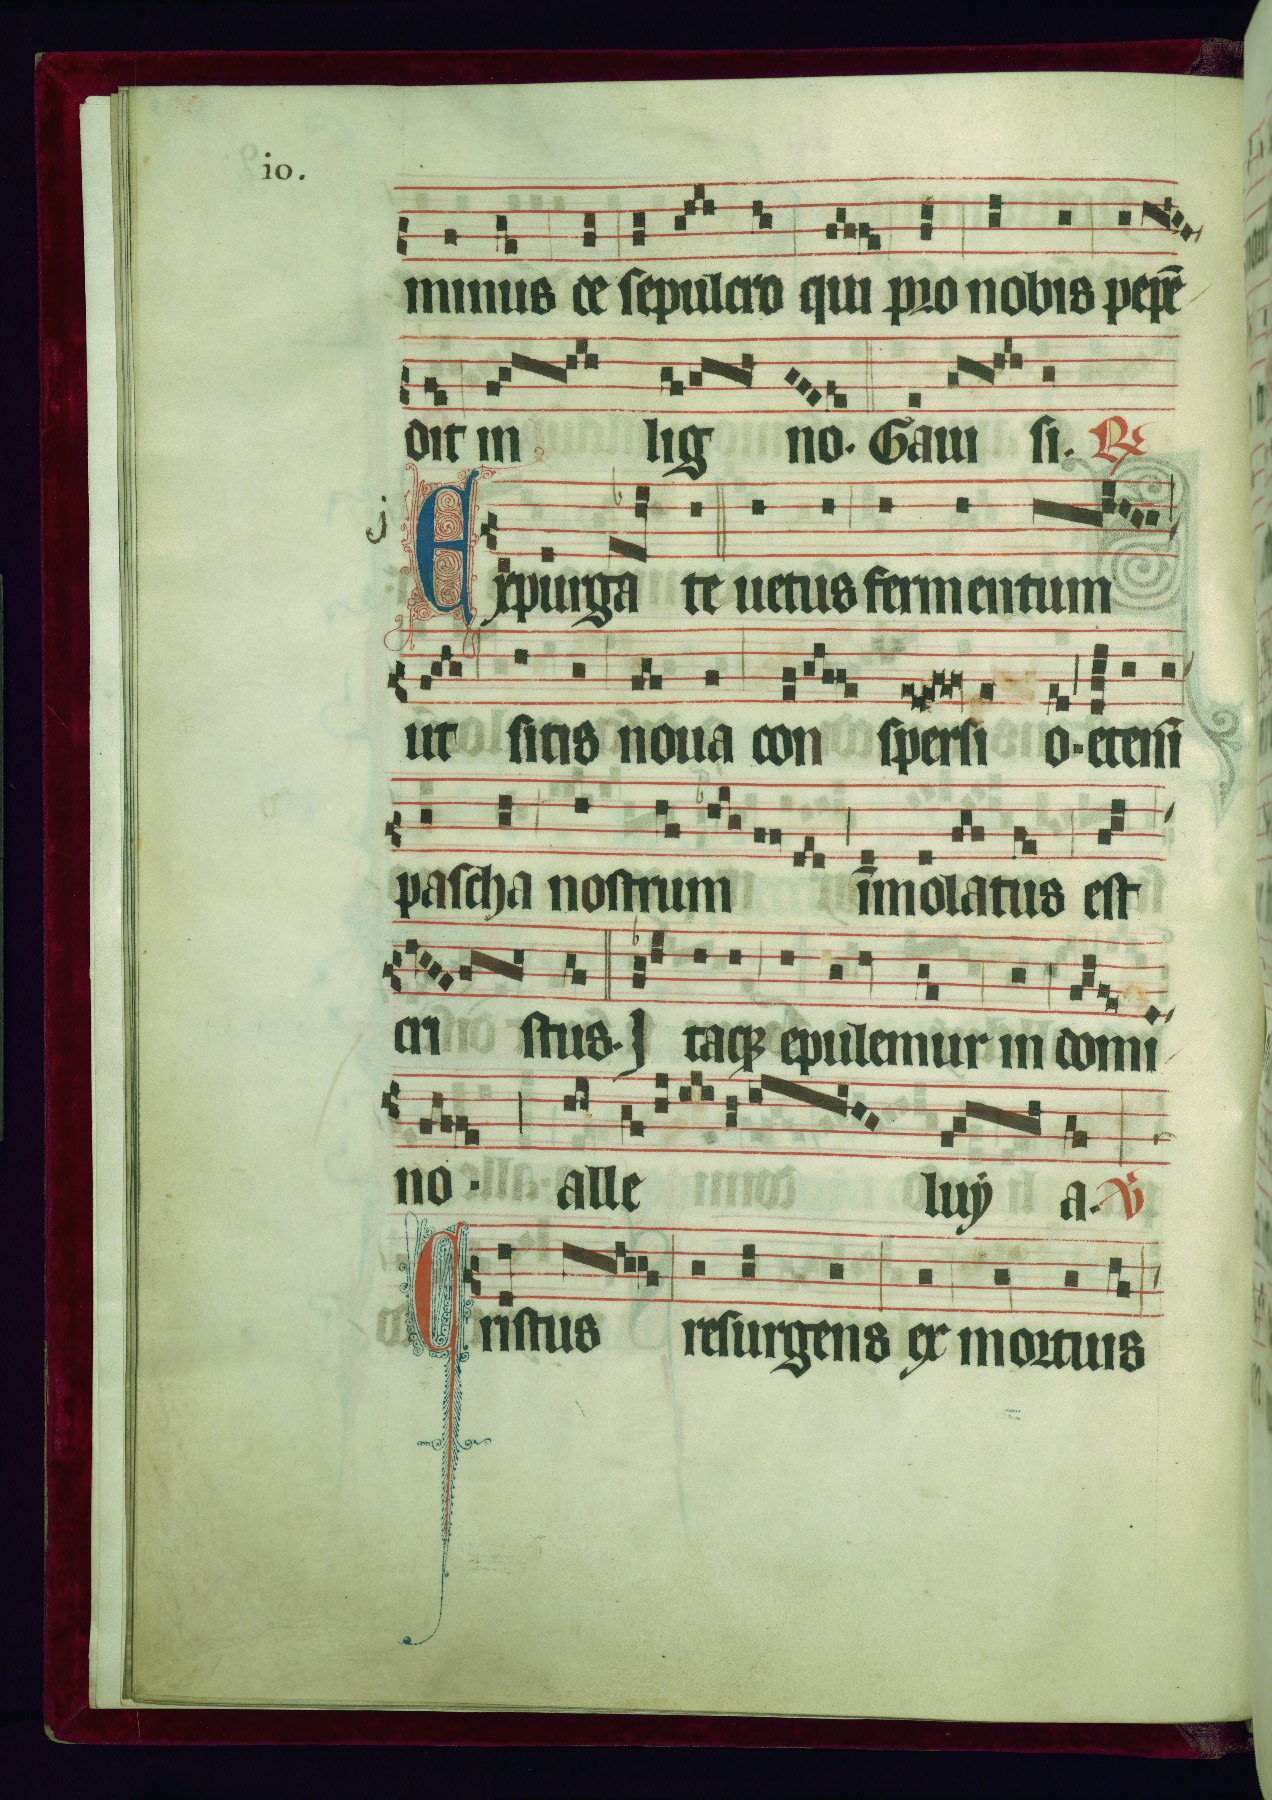 io.
minus de sepulcro qui pro nobis pepē
dit in lig no. Gaui si. ℟
j
Expurga te uetus fermentum
ut sitis noua con spersi o. etenī
pascha nostrum īmolatus est
cri stus. J taqꝫ epulemur in domi
no. alle luÿ a. ℣
Cristus resurgens ex mortuis